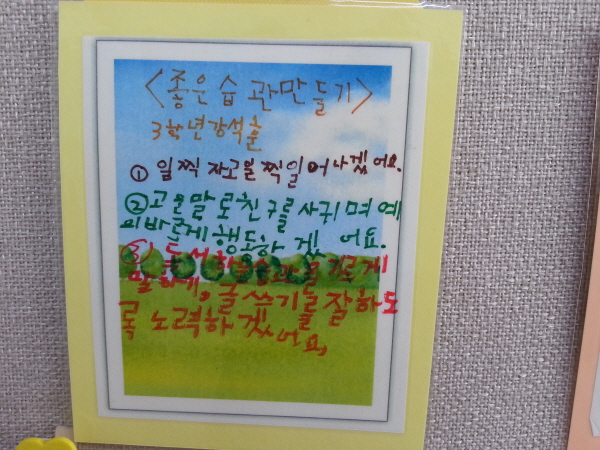 <좋은 습관만들기>
3학년강석훈
① 일찍 자고일찍일어나겠어요.
②고운말로친구를사귀며예
의바르게행동하겠어요.
③ 독서하
말하게, 글쓰기를잘하도
록노력하겠어요,